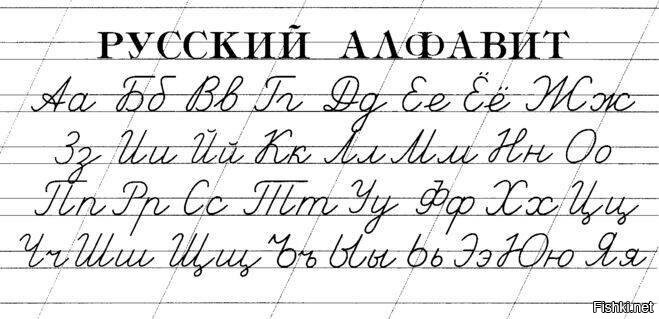 РУССКИЙ АЛФАВИТ
Аа Бб Вв Гг Дд Ее Ёё Жж
Зз Ии Йй Кк Лл Мм Нн Оо
Пп Рр Сс Тт Уу Фф Хх Цц
Чч Шш Щщ Ъъ Ыы Ьь Ээ Юю Яя
Fishki.net